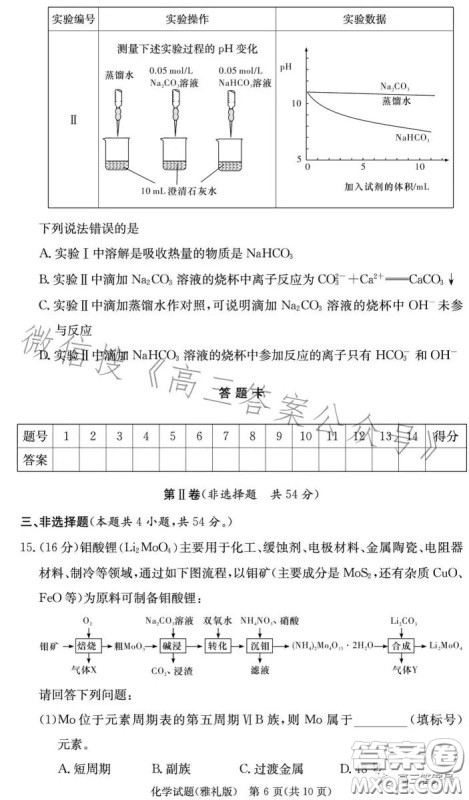 实验编号 实验操作 实验数据
Ⅱ
测量下述实验过程的 pH 变化
蒸馏水 0.05 mol/L Na₂CO₃溶液 0.05 mol/L NaHCO₃溶液
10 mL 澄清石灰水
pH
10
5
0 5 10
Na₂CO₃
蒸馏水
NaHCO₃
加入试剂的体积/mL
下列说法错误的是
A. 实验Ⅰ中溶解是吸收热量的物质是 NaHCO₃
B. 实验Ⅱ中滴加 Na₂CO₃ 溶液的烧杯中离子反应为 CO₃²⁻+Ca²⁺══CaCO₃↓
C. 实验Ⅱ中滴加蒸馏水作对照,可说明滴加 Na₂CO₃ 溶液的烧杯中 OH⁻ 未参
与反应
D. 实验Ⅱ中滴加 NaHCO₃ 溶液的烧杯中参加反应的离子只有 HCO₃⁻ 和 OH⁻
微信搜《高三答案公众号》
答 题 卡
题号 1 2 3 4 5 6 7 8 9 10 11 12 13 14 得分
答案
第Ⅱ卷(非选择题 共 54 分)
三、非选择题(本题共 4 小题,共 54 分。)
15. (16 分)钼酸锂(Li₂MoO₄)主要用于化工、缓蚀剂、电极材料、金属陶瓷、电阻器
材料、制冷等领域,通过如下图流程,以钼矿(主要成分是 MoS₂,还有杂质 CuO、
FeO 等)为原料可制备钼酸锂:
O₂ Na₂CO₃溶液 双氧水 NH₄NO₃、硝酸 Li₂CO₃
钼矿→焙烧→粗MoO₃→碱浸→转化→沉钼→(NH₄)₂Mo₄O₁₃·2H₂O→合成→Li₂MoO₄
气体X CO₂、浸渣 滤液 气体Y
请回答下列问题:
(1)Mo 位于元素周期表的第五周期ⅥB 族,则 Mo 属于________(填标号)
元素。
A. 短周期 B. 副族 C. 过渡金属 D.
化学试题(雅礼版) 第 6 页(共 10 页)
答案圈